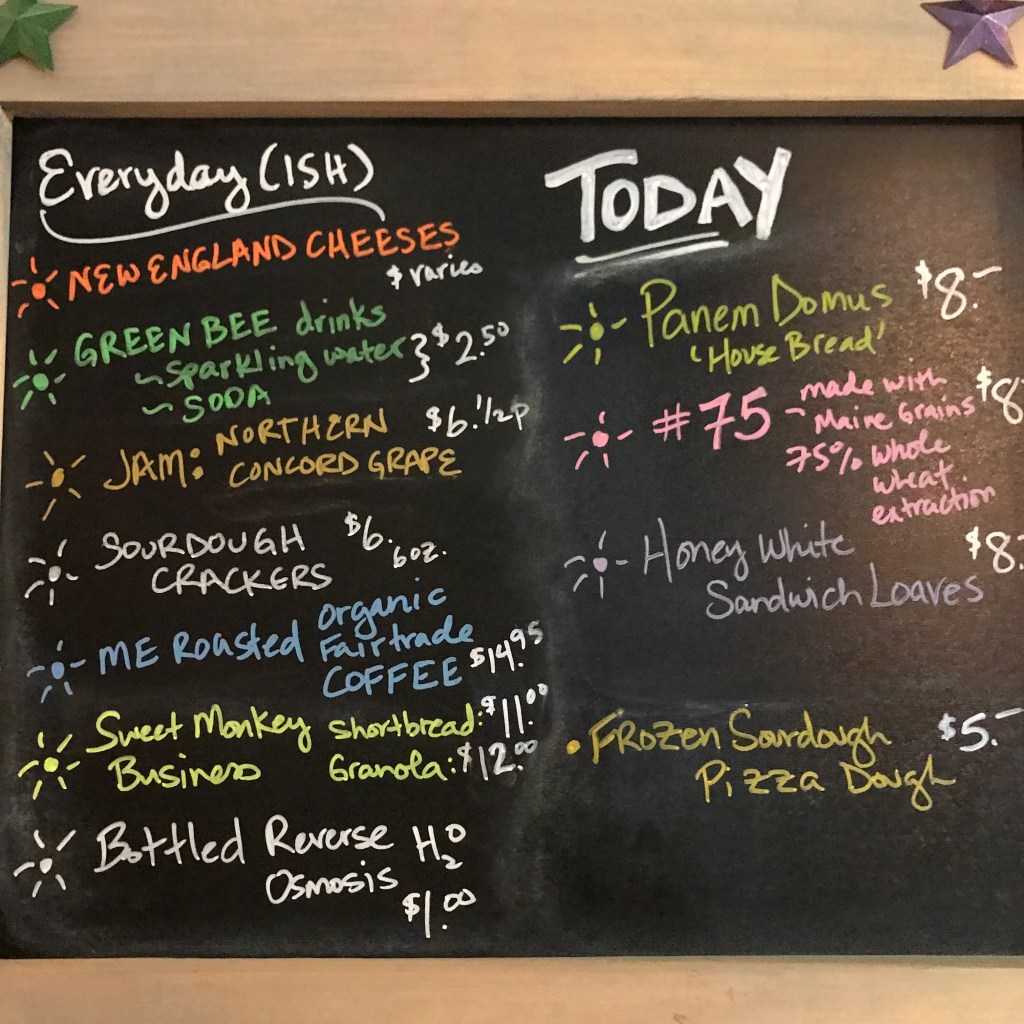 Everyday (ISH)
NEW ENGLAND CHEESES
$ varies
GREEN BEE drinks
~ Sparkling water } $2.50
~ SODA
JAM: NORTHERN $6. 1/2p
CONCORD GRAPE
SOURDOUGH $6.
CRACKERS 6oz.
ME Roasted organic
Fairtrade
COFFEE $14.95
Sweet Monkey Shortbread: $11.00
Business Granola: $12.00
Bottled Reverse H2O
Osmosis
$1.00
TODAY
Panem Domus $8.-
'House Bread'
#75 - made with
Maine Grains $8
75% whole
wheat
extraction
Honey White $8.-
Sandwich Loaves
• Frozen Sourdough $5.-
Pizza Dough